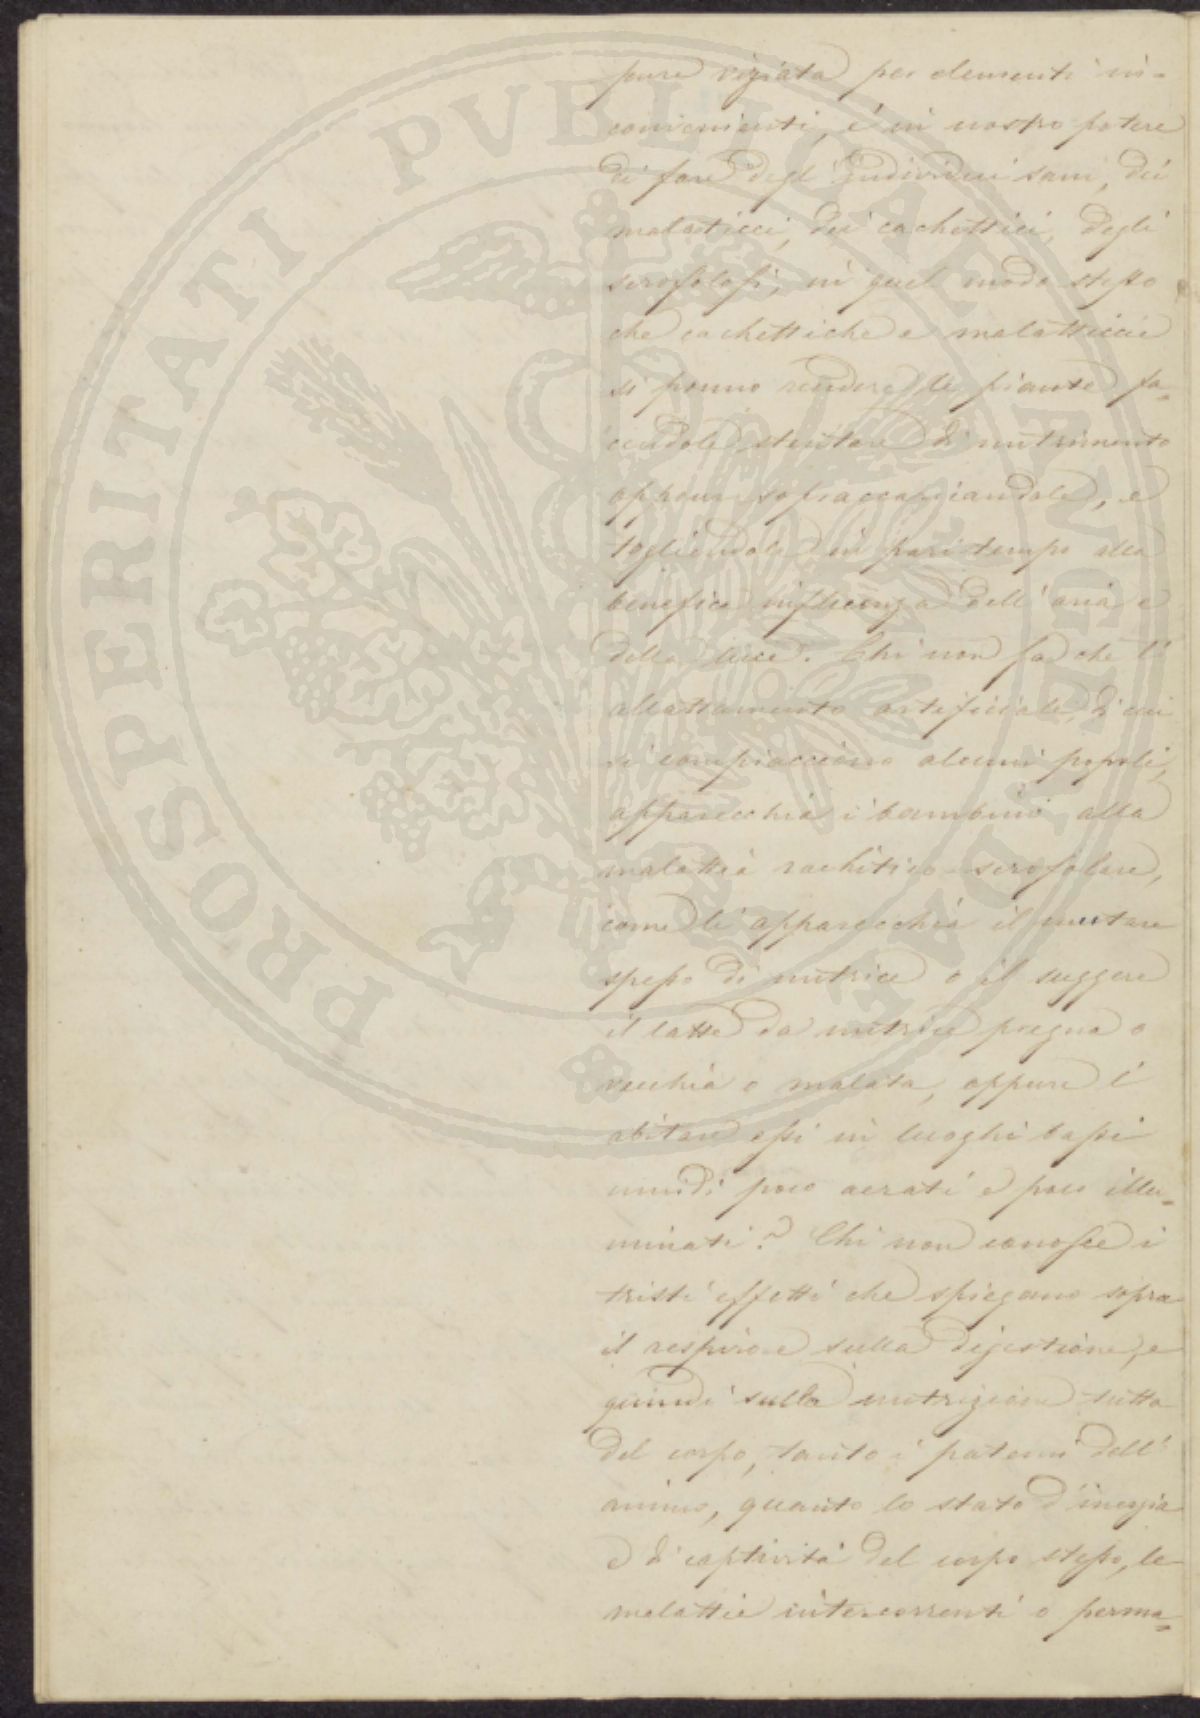 pure viziata per elementi in-
convenienti, é in nostro potere
di fare degl' individui sani, dei
malaticci, dei cachettici, degli
scrofolosi, in quel modo stesso
che cachettiche e malatticcie
si ponno rendere le piante fa-
cendole stentare di nutrimento
oppure sopraccaricandole, e
togliendole in pari tempo alla
benefica influenza dell' aria e
della luce. Chi non sa che l'
allattamento artificiale, di cui
si compiacciono alcuni popoli,
apparecchia i bambini alla
malattia rachitico-scrofolare,
come li apparecchia il mutare
spesso di nutrice o il suggere
il latte da nutrice pregna o
vecchia o malata, oppure l'
abitare essi in luoghi bassi
umidi poco aerati e poco illu-
minati? Chi non conosce i
tristi effetti che spiegano sopra
il respiro e sulla digestione, e
quindi sulla nutrizione tutta
del corpo, tanto i patemi dell'
animo, quanto lo stato d'inerzia
e di captività del corpo stesso, le
malattie intercorrenti o perma-
PROSPERITATI PVBLICAE AVGENDAE